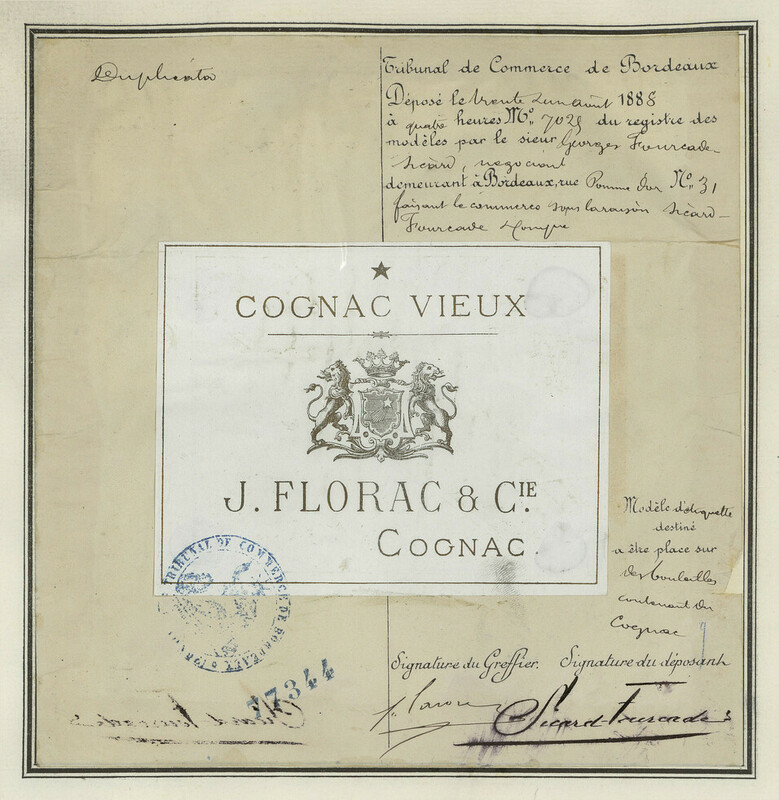 Duplicata
Tribunal de Commerce de Bordeaux
Déposé le trente un août 1888
à quatre heures No. 7029 du registre des
modèles par le sieur Georges Fourcade-
Sicard, negociant
demeurant à Bordeaux, rue Pomme d'or No. 31
faisant le commerce sous la raison Sicard-
Fourcade
COGNAC VIEUX
J. FLORAC & CIE.
COGNAC.
Modèle d'étiquette
destiné
a être place sur
des bouteilles
contenant du
Cognac
TRIBUNAL DE COMMERCE DE BORDEAUX
17344
Signature du Greffier. Signature du déposant
Sicard-Fourcade